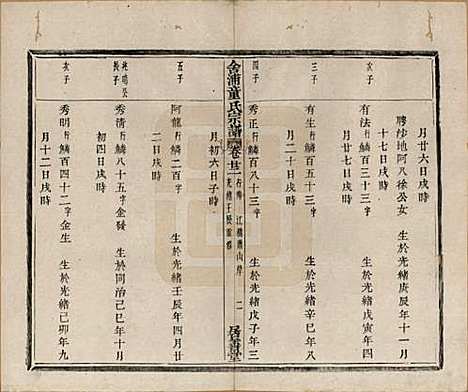 月廿六日戌時
聘沙地阿八徐公女 生於光緒庚辰年十一月
十七日戌時
次子
有法行鱗二百字 生於光緒戊寅年四
月廿七日戌時
三子
有生行鱗二百字 生於光緒辛巳年八
月二十日戌時
四子
秀正行鱗百八十三字 生於光緒戊子年三
月初六日子時
舍浦童氏宗譜 卷廿二 江橋 光緒壬辰重修 二 居善堂
五子
阿龍行鱗二百字 生於光緒壬辰年四月廿
二日戌時
純明公長子
秀清行鱗八十五字金發 生於同治己巳年十月
初四日戌時
次子
秀明行鱗百四十二字金生 生於光緒己卯年九
月十二日戌時